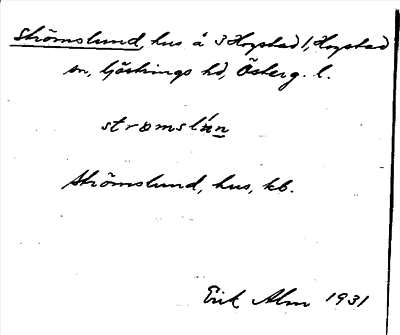 Strömslund, hus å 3 Hogstad 1, Hogstad
sn, Göstrings hd, Österg. l.
strømslún
Strömslund, hus, kb.
Erik Alm 1931